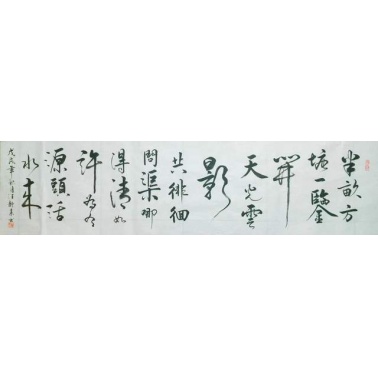 半畝方
塘一鑒
開
天光雲
影
共徘徊
問渠哪
得清如
許為有
源頭活
水來
戊戌